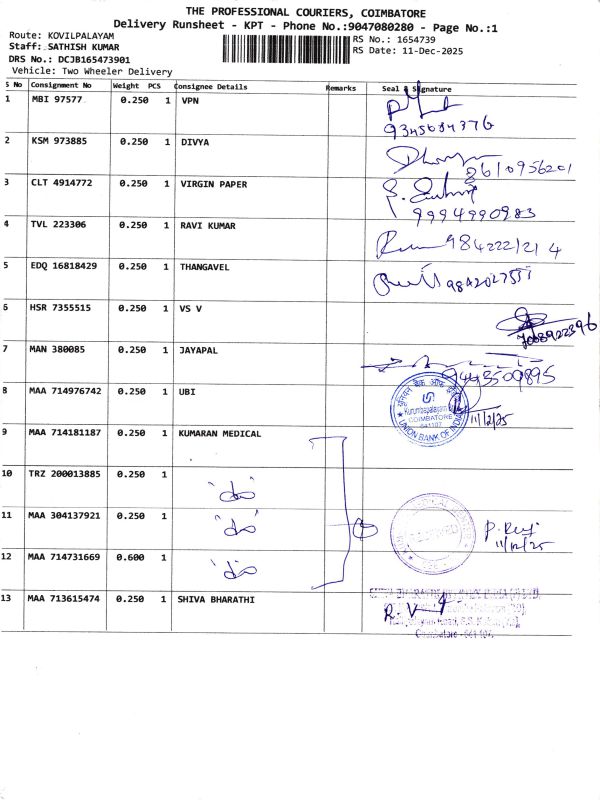 THE PROFESSIONAL COURIERS, COIMBATORE
Delivery Runsheet - KPT - Phone No.:9047080280 - Page No.:1
Route: KOVILPALAYAM
RS No.: 1654739
Staff: SATHISH KUMAR
RS Date: 11-Dec-2025
DRS No.: DCJB165473901
Vehicle: Two Wheeler Delivery
S No Consignment No Weight PCS Consignee Details Remarks Seal & Signature
1 MBI 97577 0.250 1 VPN
2 KSM 973885 0.250 1 DIVYA
8610956201
3 CLT 4914772 0.250 1 VIRGIN PAPER
9994990983
4 TVL 223306 0.250 1 RAVI KUMAR
5 EDQ 16818429 0.250 1 THANGAVEL
6 HSR 7355515 0.250 1 VS V
7 MAN 380085 0.250 1 JAYAPAL
9443509895
8 MAA 714976742 0.250 1 UBI
COIMBATORE
641107
UNION BANK OF INDIA
11/12/25
9 MAA 714181187 0.250 1 KUMARAN MEDICAL
10 TRZ 200013885 0.250 1 "do"
11 MAA 304137921 0.250 1 "do"
11/12/25
12 MAA 714731669 0.600 1 "do"
13 MAA 713615474 0.250 1 SHIVA BHARATHI
Coimbatore - 641 107.